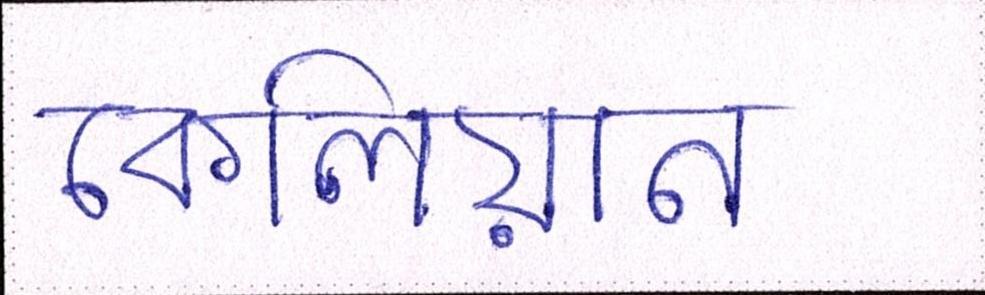 কেলিয়ান